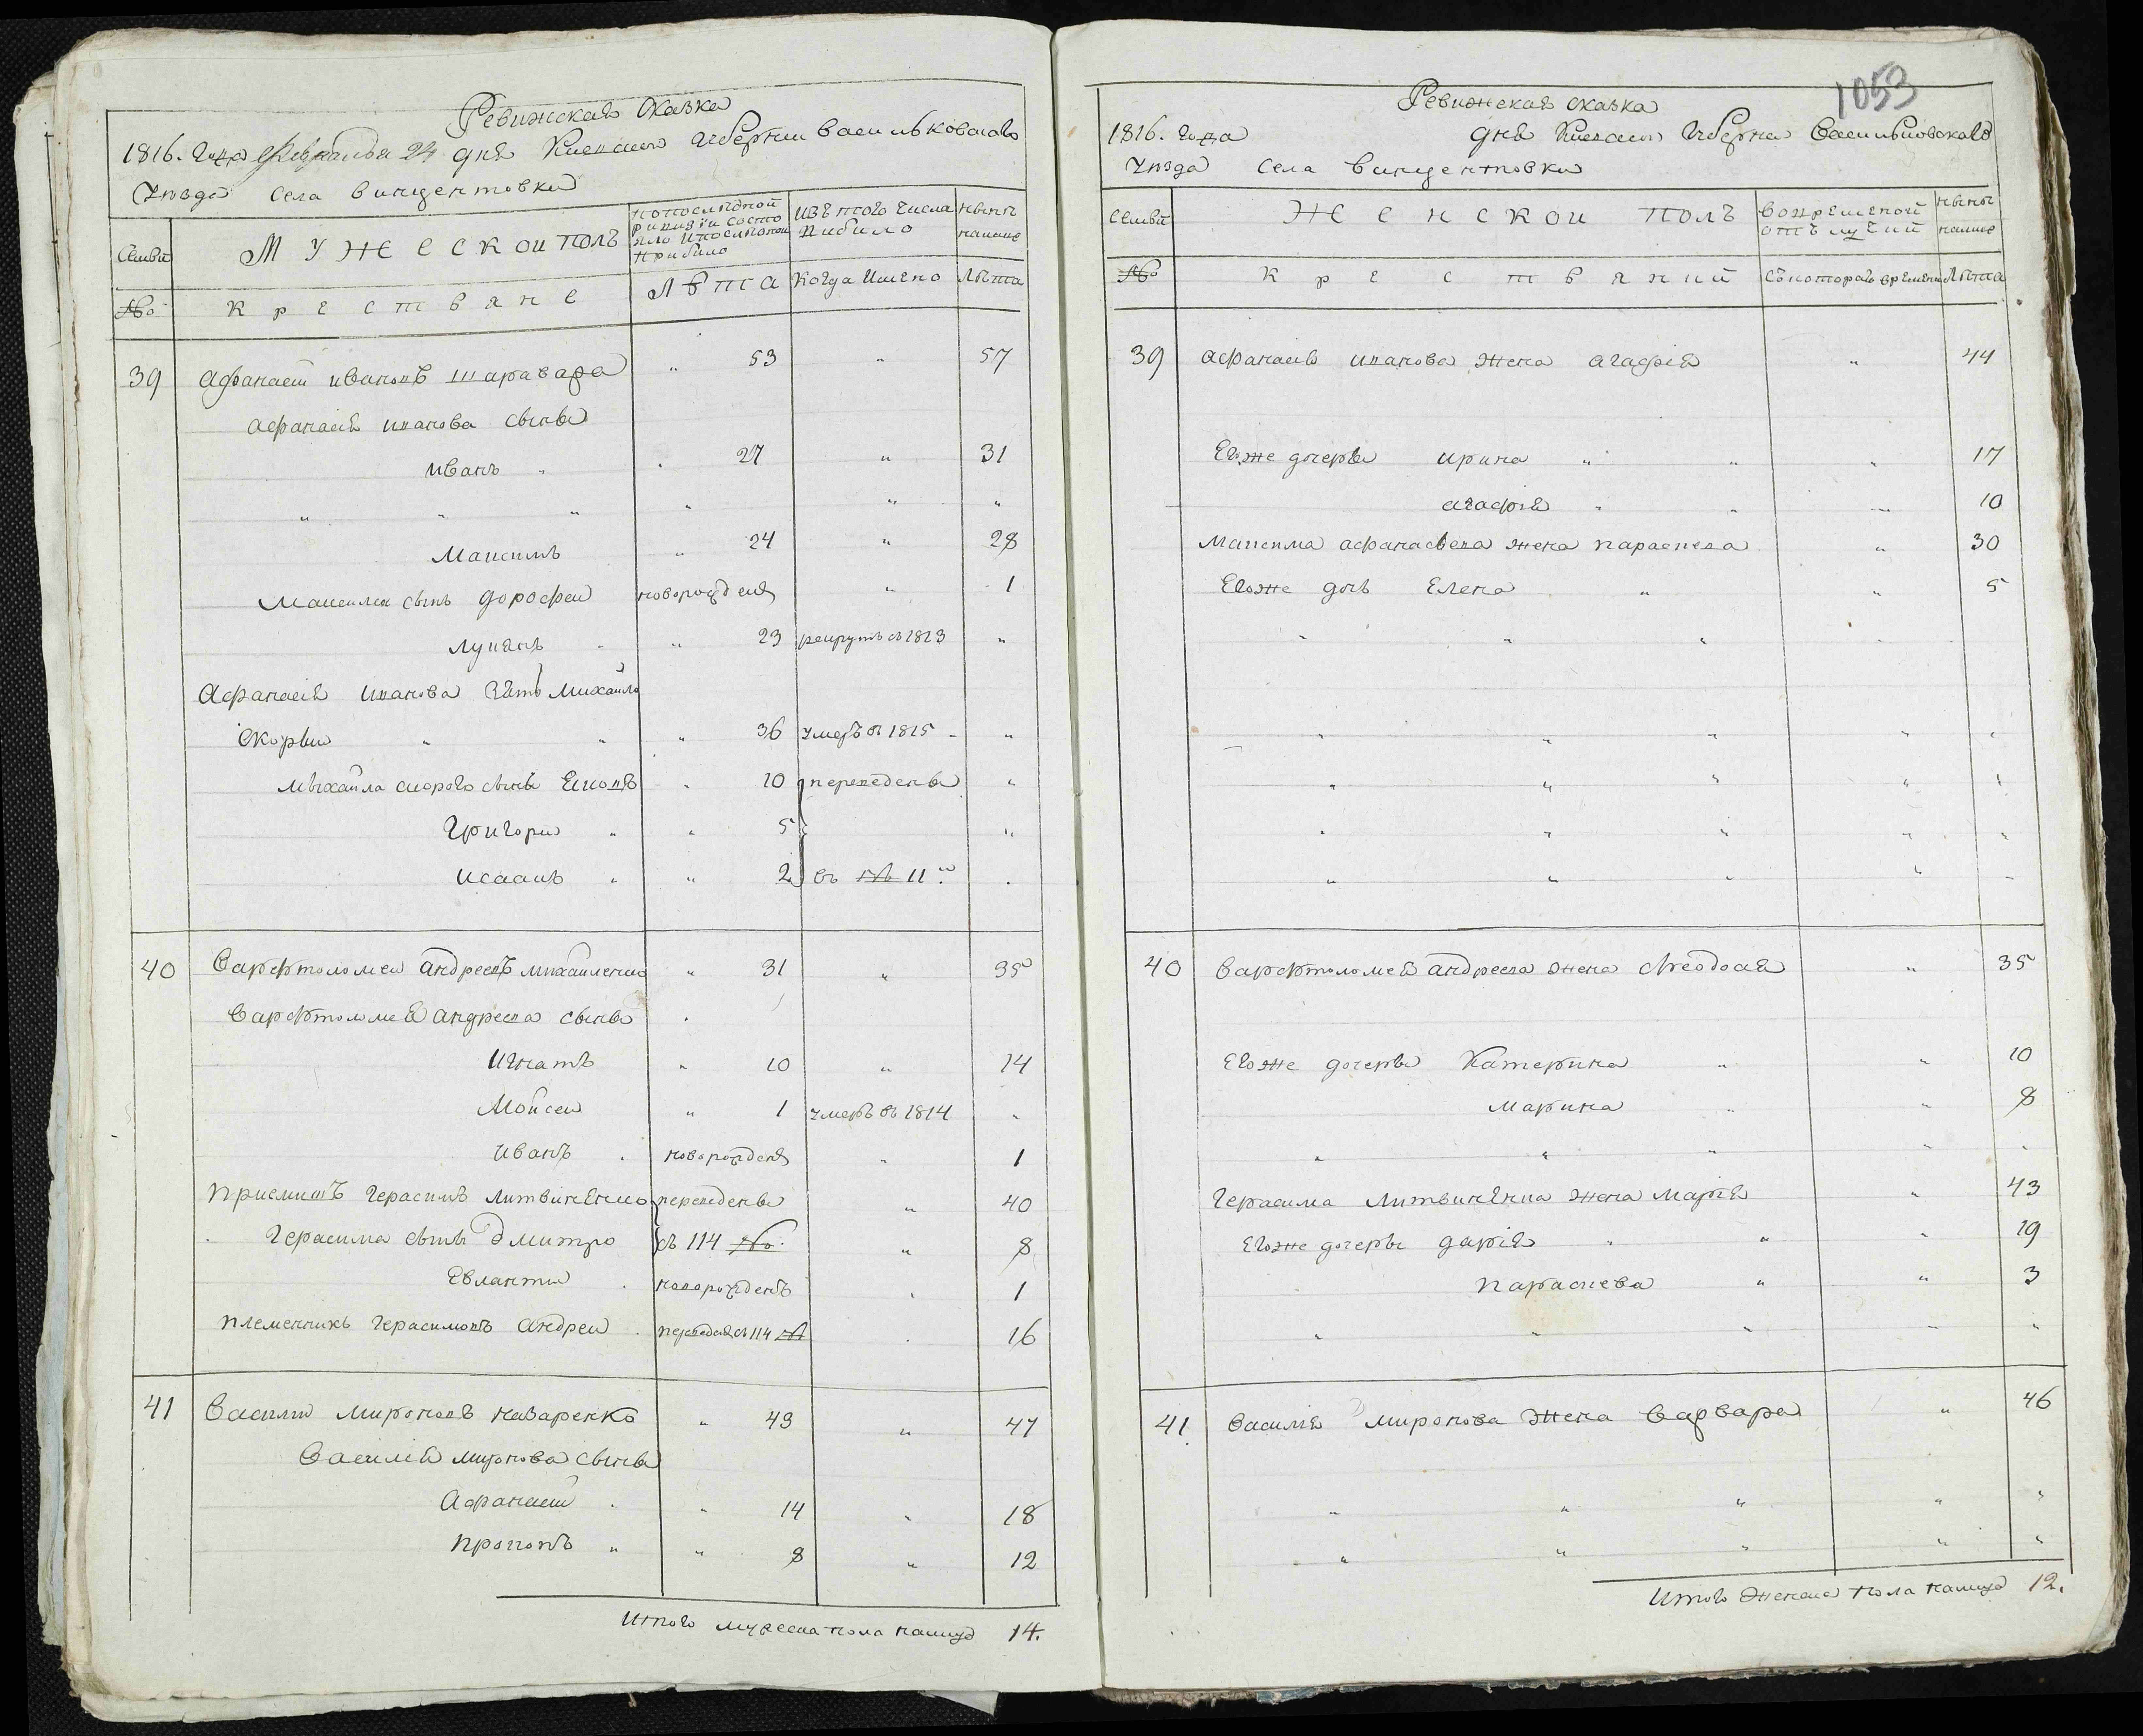 Ревижская сказка
1816. года февраля 24 дня Киевской губернии васильковского
уезда села винцентовки
Семьи
Мужеской полъ
Изъ того числа выбило
ныне налицо
№
Крестьяне
Лѣта
когда имено
Лѣта
39 афанасий ивановъ шаравара " 53 " 57
афанасия иванова сыны
иванъ " " 27 " 31
" " " " " "
Максимъ " 24 " 28
Максима сынъ дорофеи новорожденъ " 1
лукянъ " " 23 рекрутъ въ 1813 "
Афанасия иванова зять Михайло
Скорыи " " " 36 умеръ въ 1815 "
Михайла скорого сыны Якопъ " 10 переведены "
Григори " " 5 "
Исаакъ " " 2 въ № 11й "
40 варфтоломеи андреевъ михайленко " 31 " 35
варфтоломея андреева сыны
Игнатъ " 10 " 14
Мойсеи " 1 умеръ въ 1814 "
иванъ " новорожденъ " 1
приемишъ герасимъ литвиненко переведены " 40
герасима сыны дмитро съ 114 № " 8
Евлантии " новорожденъ " 1
племенникъ герасимовъ андреи " переведенъ съ 114 № " 16
41 Василии мироновъ назаренко " 43 " 47
Василия миронова сыны
Афанасии " " 14 " 18
прокопъ " " 8 " 12
Итого мужеска пола налицо 14.
1053
Ревижская сказка
1816. года дня Киевской губернии Васильковского
уезда села винцентовки
Семьи
Женской полъ
во времяной отълучки
ныне налицо
№
Крестьянки
съ которого времени
Лѣта
39 афанасия иванова жена агафия " 44
Егоже дочеры ирина " " " 17
агафия " " " 10
максима афанасьева жена параскева " 30
Егоже дочь Елена " " 5
" " " "
" " " " "
" " " " "
" " " " "
" " " " "
40 варфтоломея андреева жена феодосия " 35
Егоже дочеры Катерина " " 10
марина " " 8
" " " " "
герасима литвиненка жена мария " 43
Егоже дочеры дария " " " 19
параскева " " 3
" " " " "
41 василия миронова жена варвара " 46
" " " " "
" " " " "
Итого женска пола налицо 12.